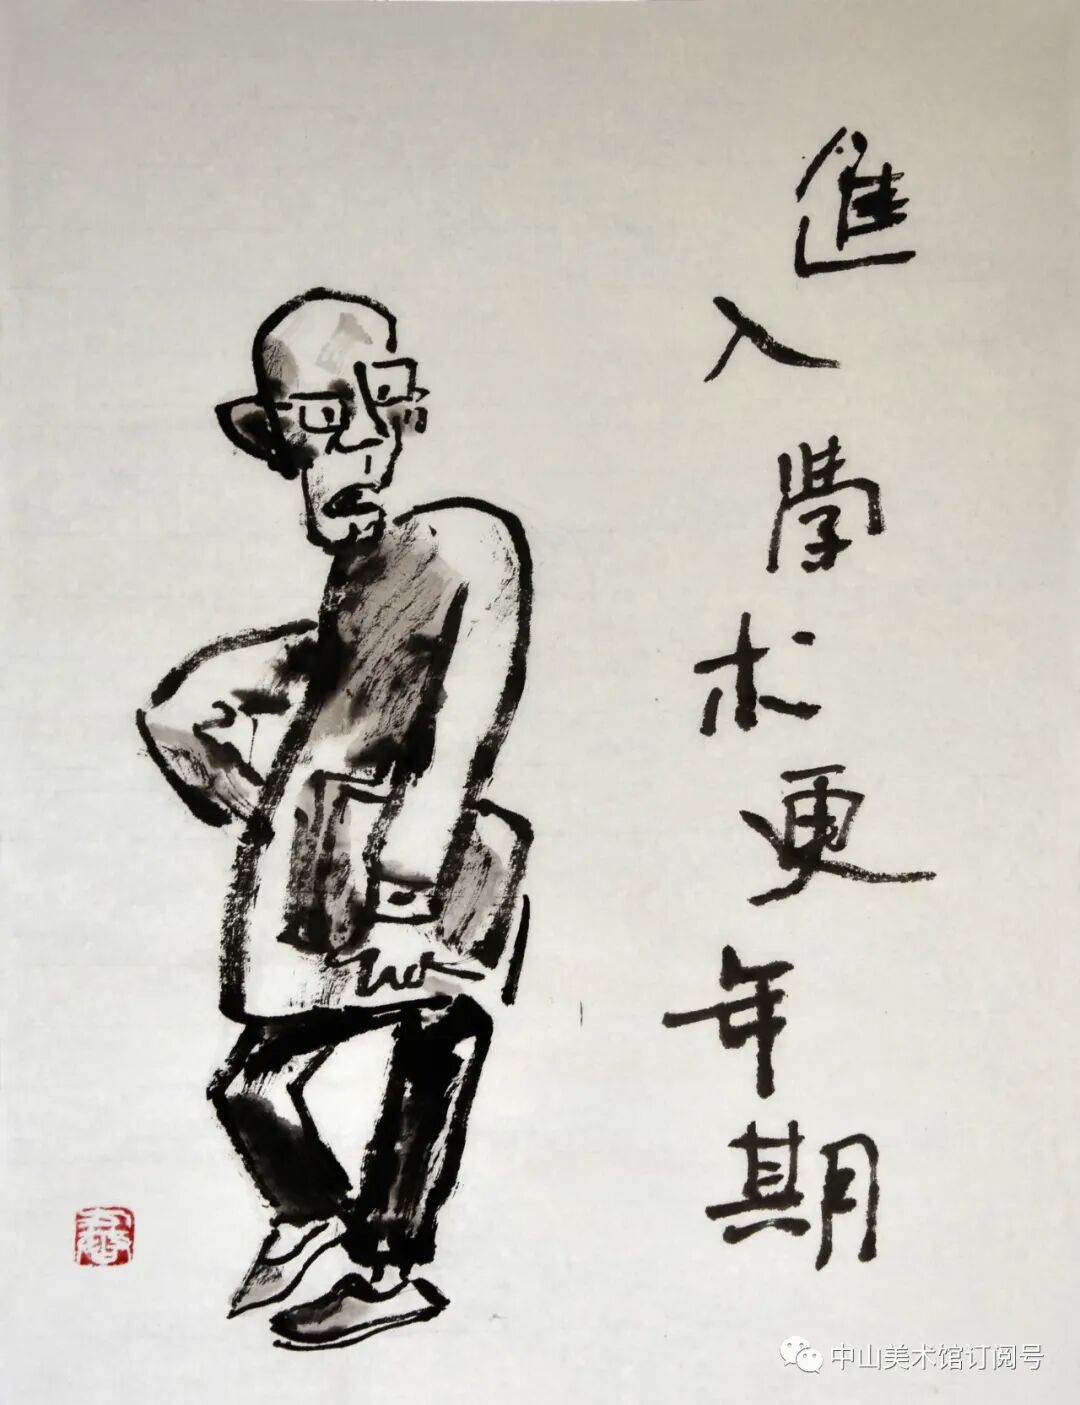 進入學术更年期
中山美术馆订阅号